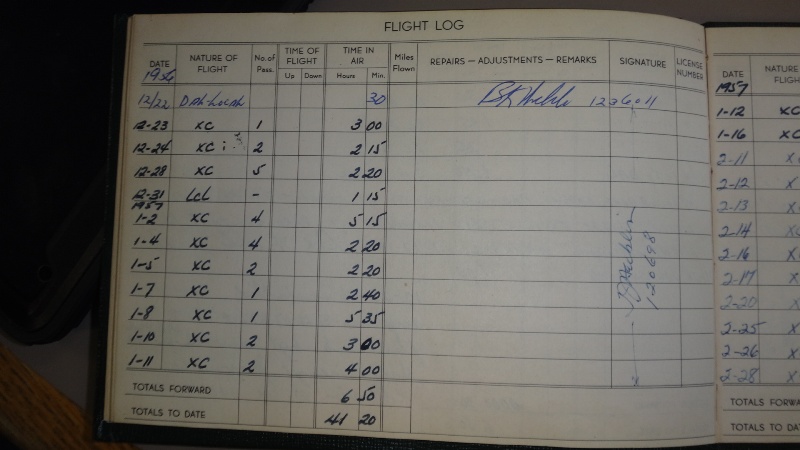 FLIGHT LOG
DATE NATURE OF FLIGHT No. of Pass. TIME OF FLIGHT Up Down TIME IN AIR Hours Min. Miles Flown REPAIRS — ADJUSTMENTS — REMARKS SIGNATURE LICENSE NUMBER
1956
12/22 30
12-23 XC 1 3 00
12-24 XC 2 2 15
12-28 XC 5 2 20
12-31 LCL - 1 15
1957
1-2 XC 4 5 15
1-4 XC 4 2 20
1-5 XC 2 2 20
1-7 XC 1 2 40
1-8 XC 1 5 35
1-10 XC 2 3 00
1-11 XC 2 4 00
120698
TOTALS FORWARD 6 50
TOTALS TO DATE 41 20
DATE NATURE FLIGHT
1957
1-12 XC
1-16 XC
2-11 X
2-12 X
2-13 X
2-14 XC
2-16 X
2-17 X
2-20 X
2-25 X
2-26 X
2-28 X
TOTALS FORWA
TOTALS TO DA